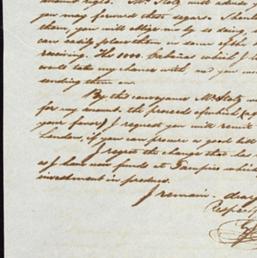 you may forward these segars. Should
them, you will oblige me by so doing
can safely place them in some of the
receiving. The 1000 Cabañas which I
would take my chance with, and you
sending them on.
By this conveyance Mr Stolz
for my amount, the proceeds of which
your favor) I request you will remit
London, if you can procure a good bill
I regret the change that has
as I have now funds at Tampico
investment in produce.
I remain, dear
Respec